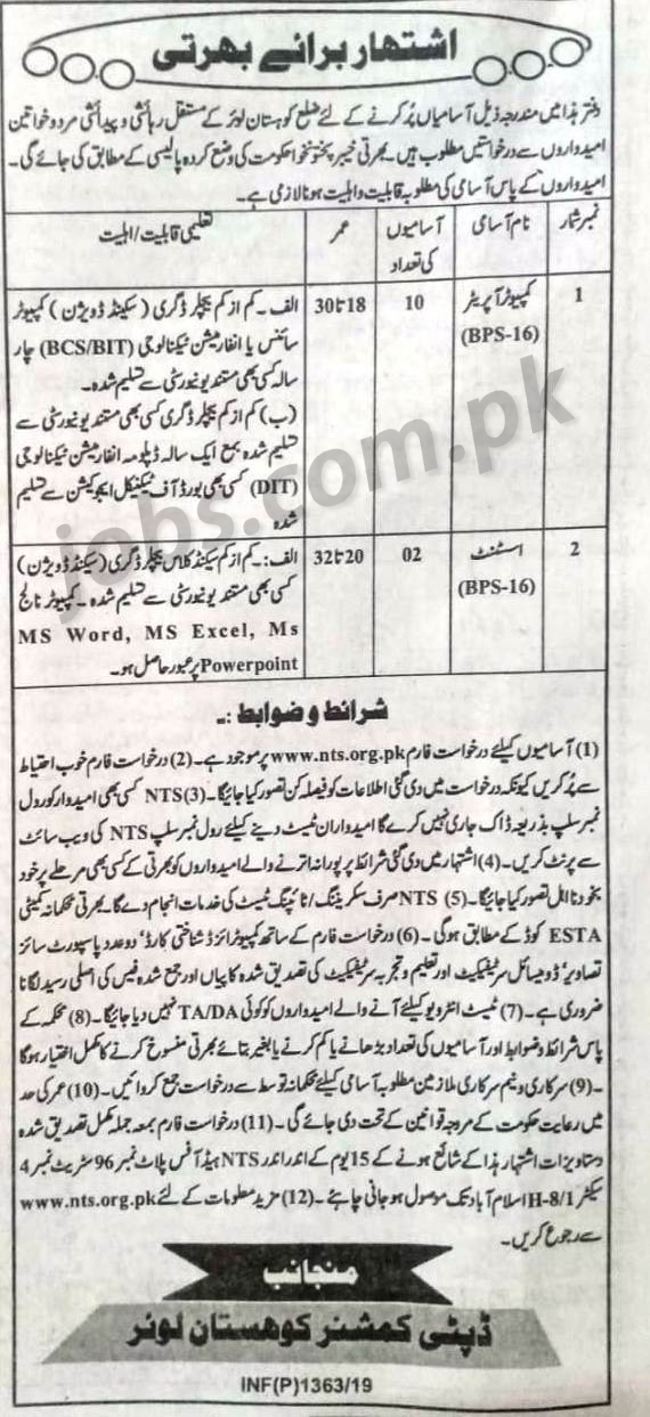 اشتہار برائے بھرتی
دفتر ہذا میں مندرجہ ذیل آسامیاں پُر کرنے کے لئے ضلع کوہستان لوئر کے مستقل رہائشی و پیدائشی مرد و خواتین
امیدواروں سے درخواستیں مطلوب ہیں۔ بھرتی خیبر پختونخوا حکومت کی وضع کردہ پالیسی کے مطابق کی جائے گی۔
امیدواروں کے پاس آسامی کی مطلوبہ قابلیت و اہلیت ہونا لازمی ہے۔
نمبر شمار | نام آسامی | آسامیوں کی تعداد | عمر | تعلیمی قابلیت / اہلیت
1 | کمپیوٹر آپریٹر (BPS-16) | 10 | 18 تا 30 | الف۔ کم از کم بیچلر ڈگری (سکینڈ ڈویژن) کمپیوٹر
سائنس یا انفارمیشن ٹیکنالوجی (BCS/BIT) چار
سالہ کسی بھی مستند یونیورسٹی سے تسلیم شدہ۔
(ب) کم از کم بیچلر ڈگری کسی بھی مستند یونیورسٹی سے
تسلیم شدہ بمع ایک سالہ ڈپلومہ انفارمیشن ٹیکنالوجی
(DIT) کسی بھی بورڈ آف ٹیکنیکل ایجوکیشن سے تسلیم
شدہ
2 | اسسٹنٹ (BPS-16) | 02 | 20 تا 32 | الف:۔ کم از کم سیکنڈ کلاس بیچلر ڈگری (سیکنڈ ڈویژن)
کسی بھی مستند یونیورسٹی سے تسلیم شدہ۔ کمپیوٹر نالج
MS Word, MS Excel, Ms
Powerpoint پر عبور حاصل ہو۔
شرائط و ضوابط :۔
(1) آسامیوں کیلئے درخواست فارم www.nts.org.pk پر موجود ہے۔ (2) درخواست فارم خوب احتیاط
سے پُر کریں کیونکہ درخواست میں دی گئی اطلاعات کو فیصلہ کن تصور کیا جائیگا۔ (3) NTS کسی بھی امیدوار کو رول
نمبر سلپ بذریعہ ڈاک جاری نہیں کرے گا امیدواران ٹیسٹ دینے کیلئے رول نمبر سلپ NTS کی ویب سائٹ
سے پرنٹ کریں۔ (4) اشتہار میں دی گئی شرائط پر پورا نہ اترنے والے امیدواروں کو بھرتی کے کسی بھی مرحلے پر خود
بخود نااہل تصور کیا جائیگا۔ (5) NTS صرف سکریننگ / ٹائپنگ ٹیسٹ کی خدمات انجام دے گا۔ بھرتی محکمانہ کمیٹی
ESTA کوڈ کے مطابق ہوگی۔ (6) درخواست فارم کے ساتھ کمپیوٹرائزڈ شناختی کارڈ، دو عدد پاسپورٹ سائز
تصاویر، ڈومیسائل سرٹیفکیٹ اور تعلیم و تجربہ سرٹیفکیٹ کی تصدیق شدہ کاپیاں اور جمع شدہ فیس کی اصلی رسید لگانا
ضروری ہے۔ (7) ٹیسٹ انٹرویو کیلئے آنے والے امیدواروں کو کوئی TA/DA نہیں دیا جائیگا۔ (8) محکمہ کے
پاس شرائط و ضوابط اور آسامیوں کی تعداد بڑھانے یا کم کرنے یا بغیر بتائے بھرتی منسوخ کرنے کا مکمل اختیار ہوگا
۔ (9) سرکاری و نیم سرکاری ملازمین مطلوبہ آسامی کیلئے محکمانہ توسط سے درخواست جمع کروائیں۔ (10) عمر کی حد
میں رعایت حکومت کے مروجہ قوانین کے تحت دی جائے گی۔ (11) درخواست فارم بمعہ جملہ مکمل تصدیق شدہ
دستاویزات اشتہار ہذا کے شائع ہونے کے 15 یوم کے اندر اندر NTS ہیڈ آفس پلاٹ نمبر 96 سٹریٹ نمبر 4
سیکٹر H-8/1 اسلام آباد تک موصول ہو جانی چاہئے۔ (12) مزید معلومات کے لئے www.nts.org.pk
سے رجوع کریں۔
منجانب
ڈپٹی کمشنر کوہستان لوئر
INF(P)1363/19
jobs.com.pk